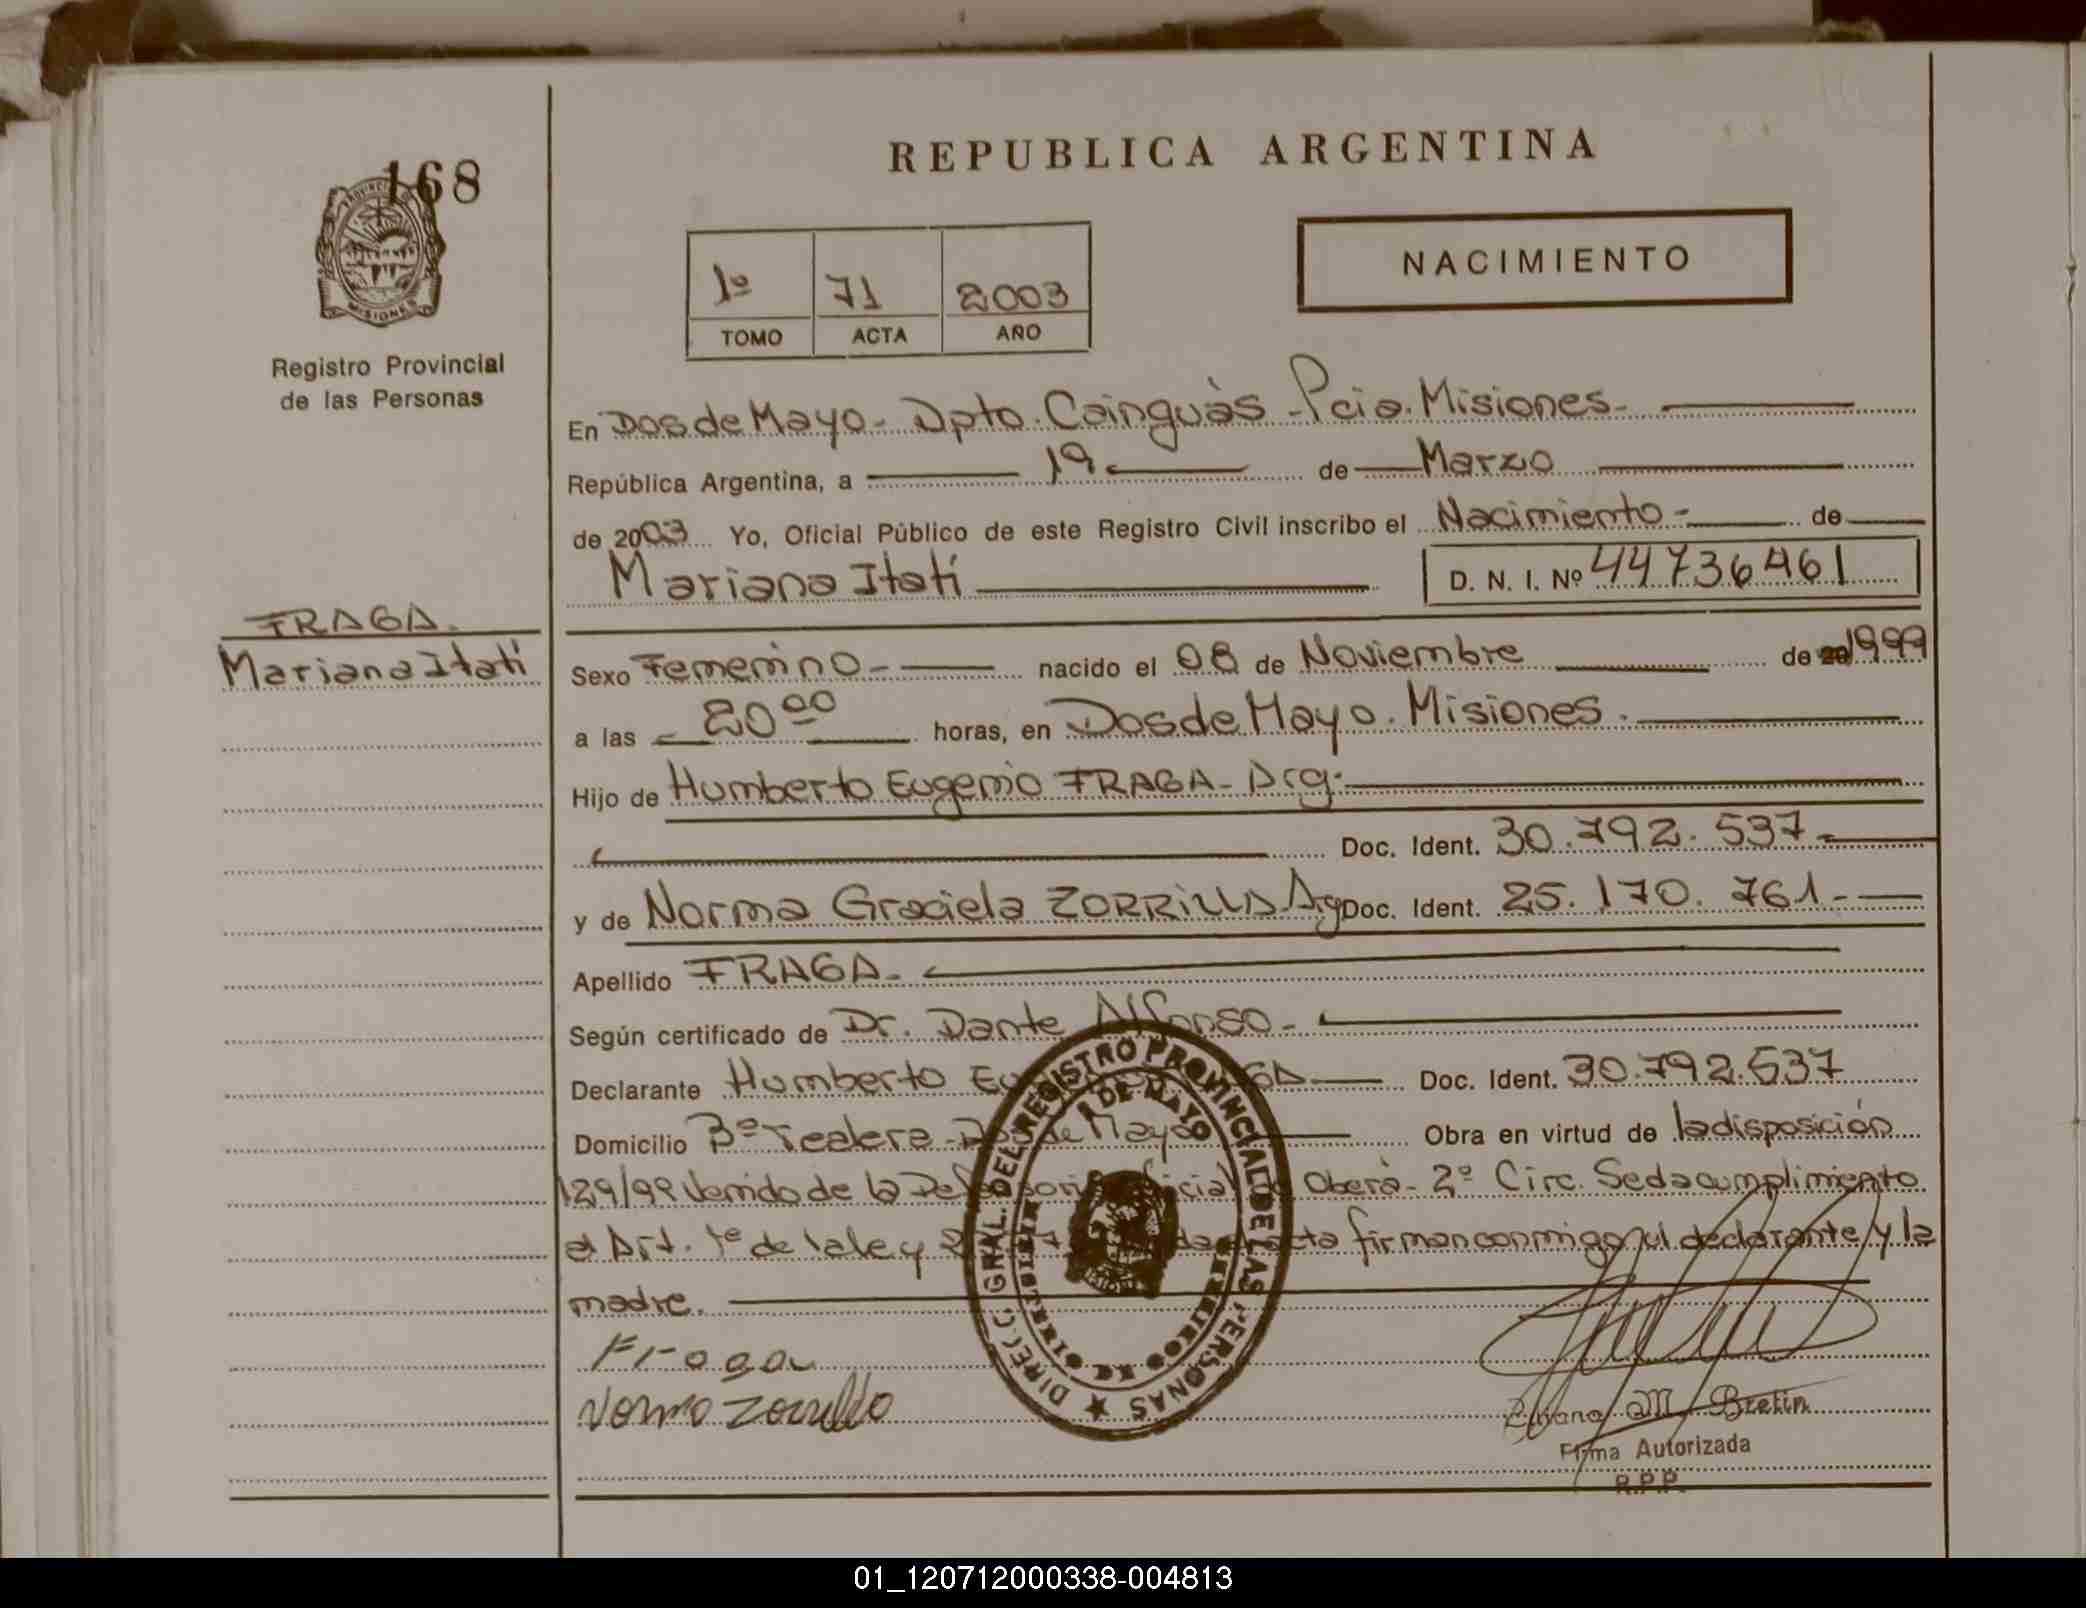 168
PROVINCIA
MISIONES
Registro Provincial
de las Personas
REPUBLICA ARGENTINA
1º 71 2003
TOMO ACTA AÑO
NACIMIENTO
En Dos de Mayo - Dpto. Cainguàs - Pcia. Misiones -
República Argentina, a 19 de Marzo
de 2003 Yo, Oficial Público de este Registro Civil inscribo el Nacimiento - de
Mariana Itatí D. N. I. Nº 44736461
FRAGA.
Mariana Itatí
Sexo Femenino - nacido el 08 de Noviembre de 1999
a las 20 00 horas, en Dos de Mayo. Misiones.
Hijo de Humberto Eugenio FRAGA - Arg.
Doc. Ident. 30.792.537 -
y de Norma Graciela ZORRILLA Arg Doc. Ident. 25.170.761 -
Apellido FRAGA -
Según certificado de Dr. Dante Alfonso -
Declarante Humberto Doc. Ident. 30.792.537
Domicilio 3º Tealera - Dos de Mayo Obra en virtud de la disposición
129/99 Venido de la Oberà - 2º Circ. Se da cumplimiento
el Art. 1º de la ley acta firman conmigo el declarante y la
madre.
Fraga
Norma Zorrilla
DIRECC. GRAL. DEL REGISTRO PROVINCIAL DE LAS PERSONAS
DE MAYO
M. Bretin
Firma Autorizada
R.P.P.
01_120712000338-004813